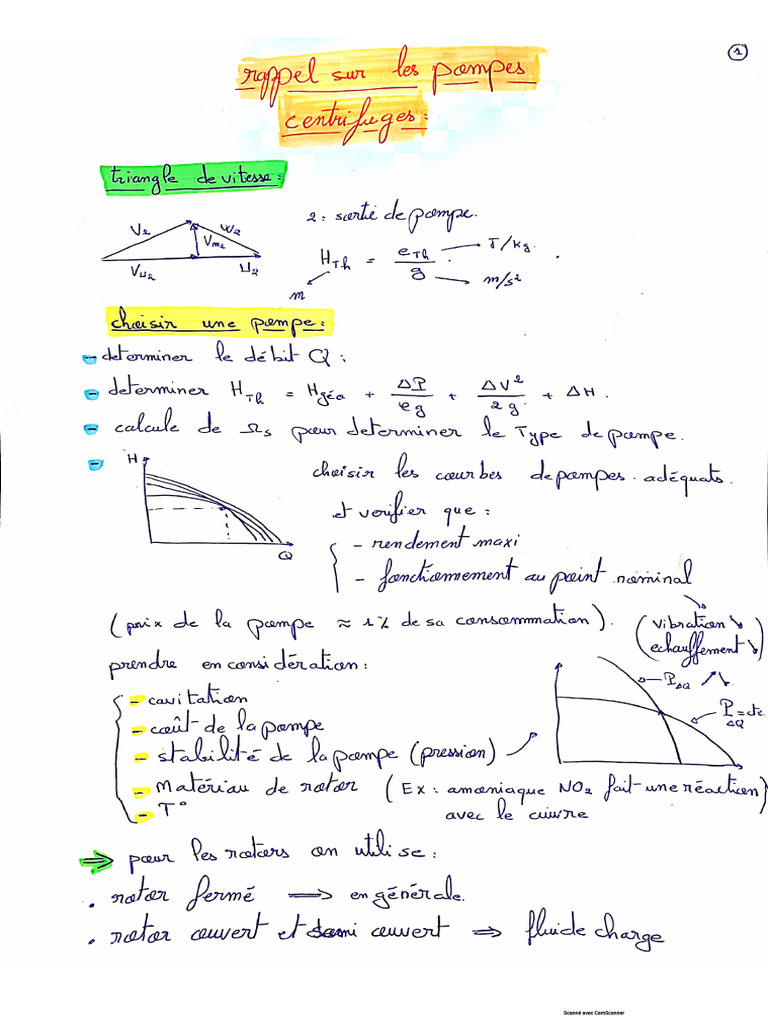 1
rappel sur les pompes
centrifuges :
triangle de vitesse :
2 : sortie de pompe.
V2 W2 Vm2 Vu2 U2
HTh = eTh / g
J/kg.
m/s²
m
choisir une pompe :
- determiner le débit Q :
- determiner HTh = Hgéo + ΔP/ρg + ΔV²/2g + ΔH.
- calcule de Ωs pour determiner le Type de pompe.
- choisir les courbes de pompes adéquats.
H
Q
et verifier que :
- rendement maxi
- fonctionnement au point nominal
(prix de la pompe ≈ 1% de sa consommation).
(vibration ↘
echauffement ↘)
prendre en considération :
- cavitation
- coût de la pompe
- stabilité de la pompe (pression)
- Matériau de rotor (Ex : amoniaque NO2 fait une réaction)
avec le cuivre
- T°
PΔQ ↗↘
P=cte
ΔQ
⇒ pour les rotors on utilise :
. rotor fermé → en générale.
. rotor ouvert et demi ouvert ⇒ fluide charge
Scanné avec CamScanner